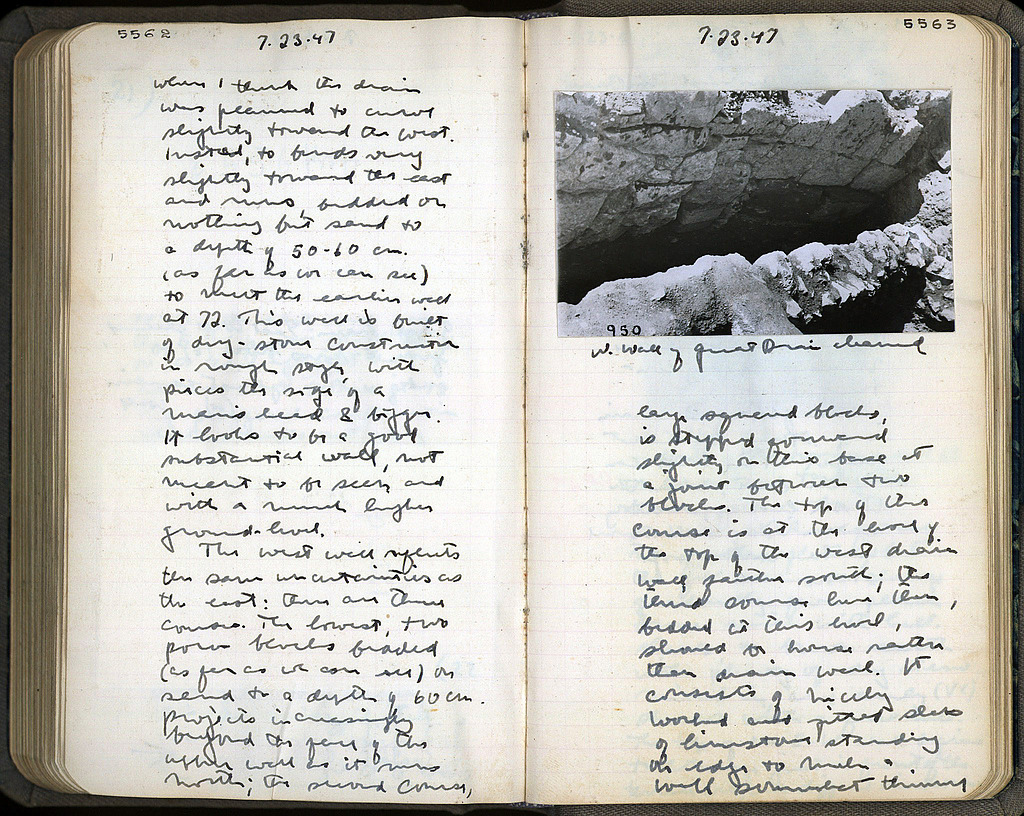 5562
7.23.47
where I think the drain
was planned to curve
slightly toward the west.
Instead, it bends very
slightly toward the east
and runs bedded on
nothing but sand to
a depth of 50-60 cm.
(as far as we can see)
to meet the earlier wall
at 72. This wall is built
of dry-stone construction
in rough style, with
pieces the size of a
man's head & bigger.
It looks to be a good
substantial wall, not
meant to be seen, and
with a much higher
ground-level.
The west wall repeats
the same uncertainties as
the east: there are three
courses. The lowest, two
poros blocks bedded
(as far as we can see) on
sand to a depth of 60 cm.
projects increasingly
beyond the face of the
upper wall as it runs
north; the second course,
5563
7.23.47
950
W. Wall of Great Drain cleaned
large squared blocks,
is stepped forward
slightly on this base at
a joint between two
blocks. The top of this
course is at the level of
the top of the west drain
wall farther south; the
third course here then,
bedded at this level,
should be house rather
than drain wall. It
consists of nicely
worked and fitted slabs
of limestone standing
on edge to make a
wall somewhat thinner